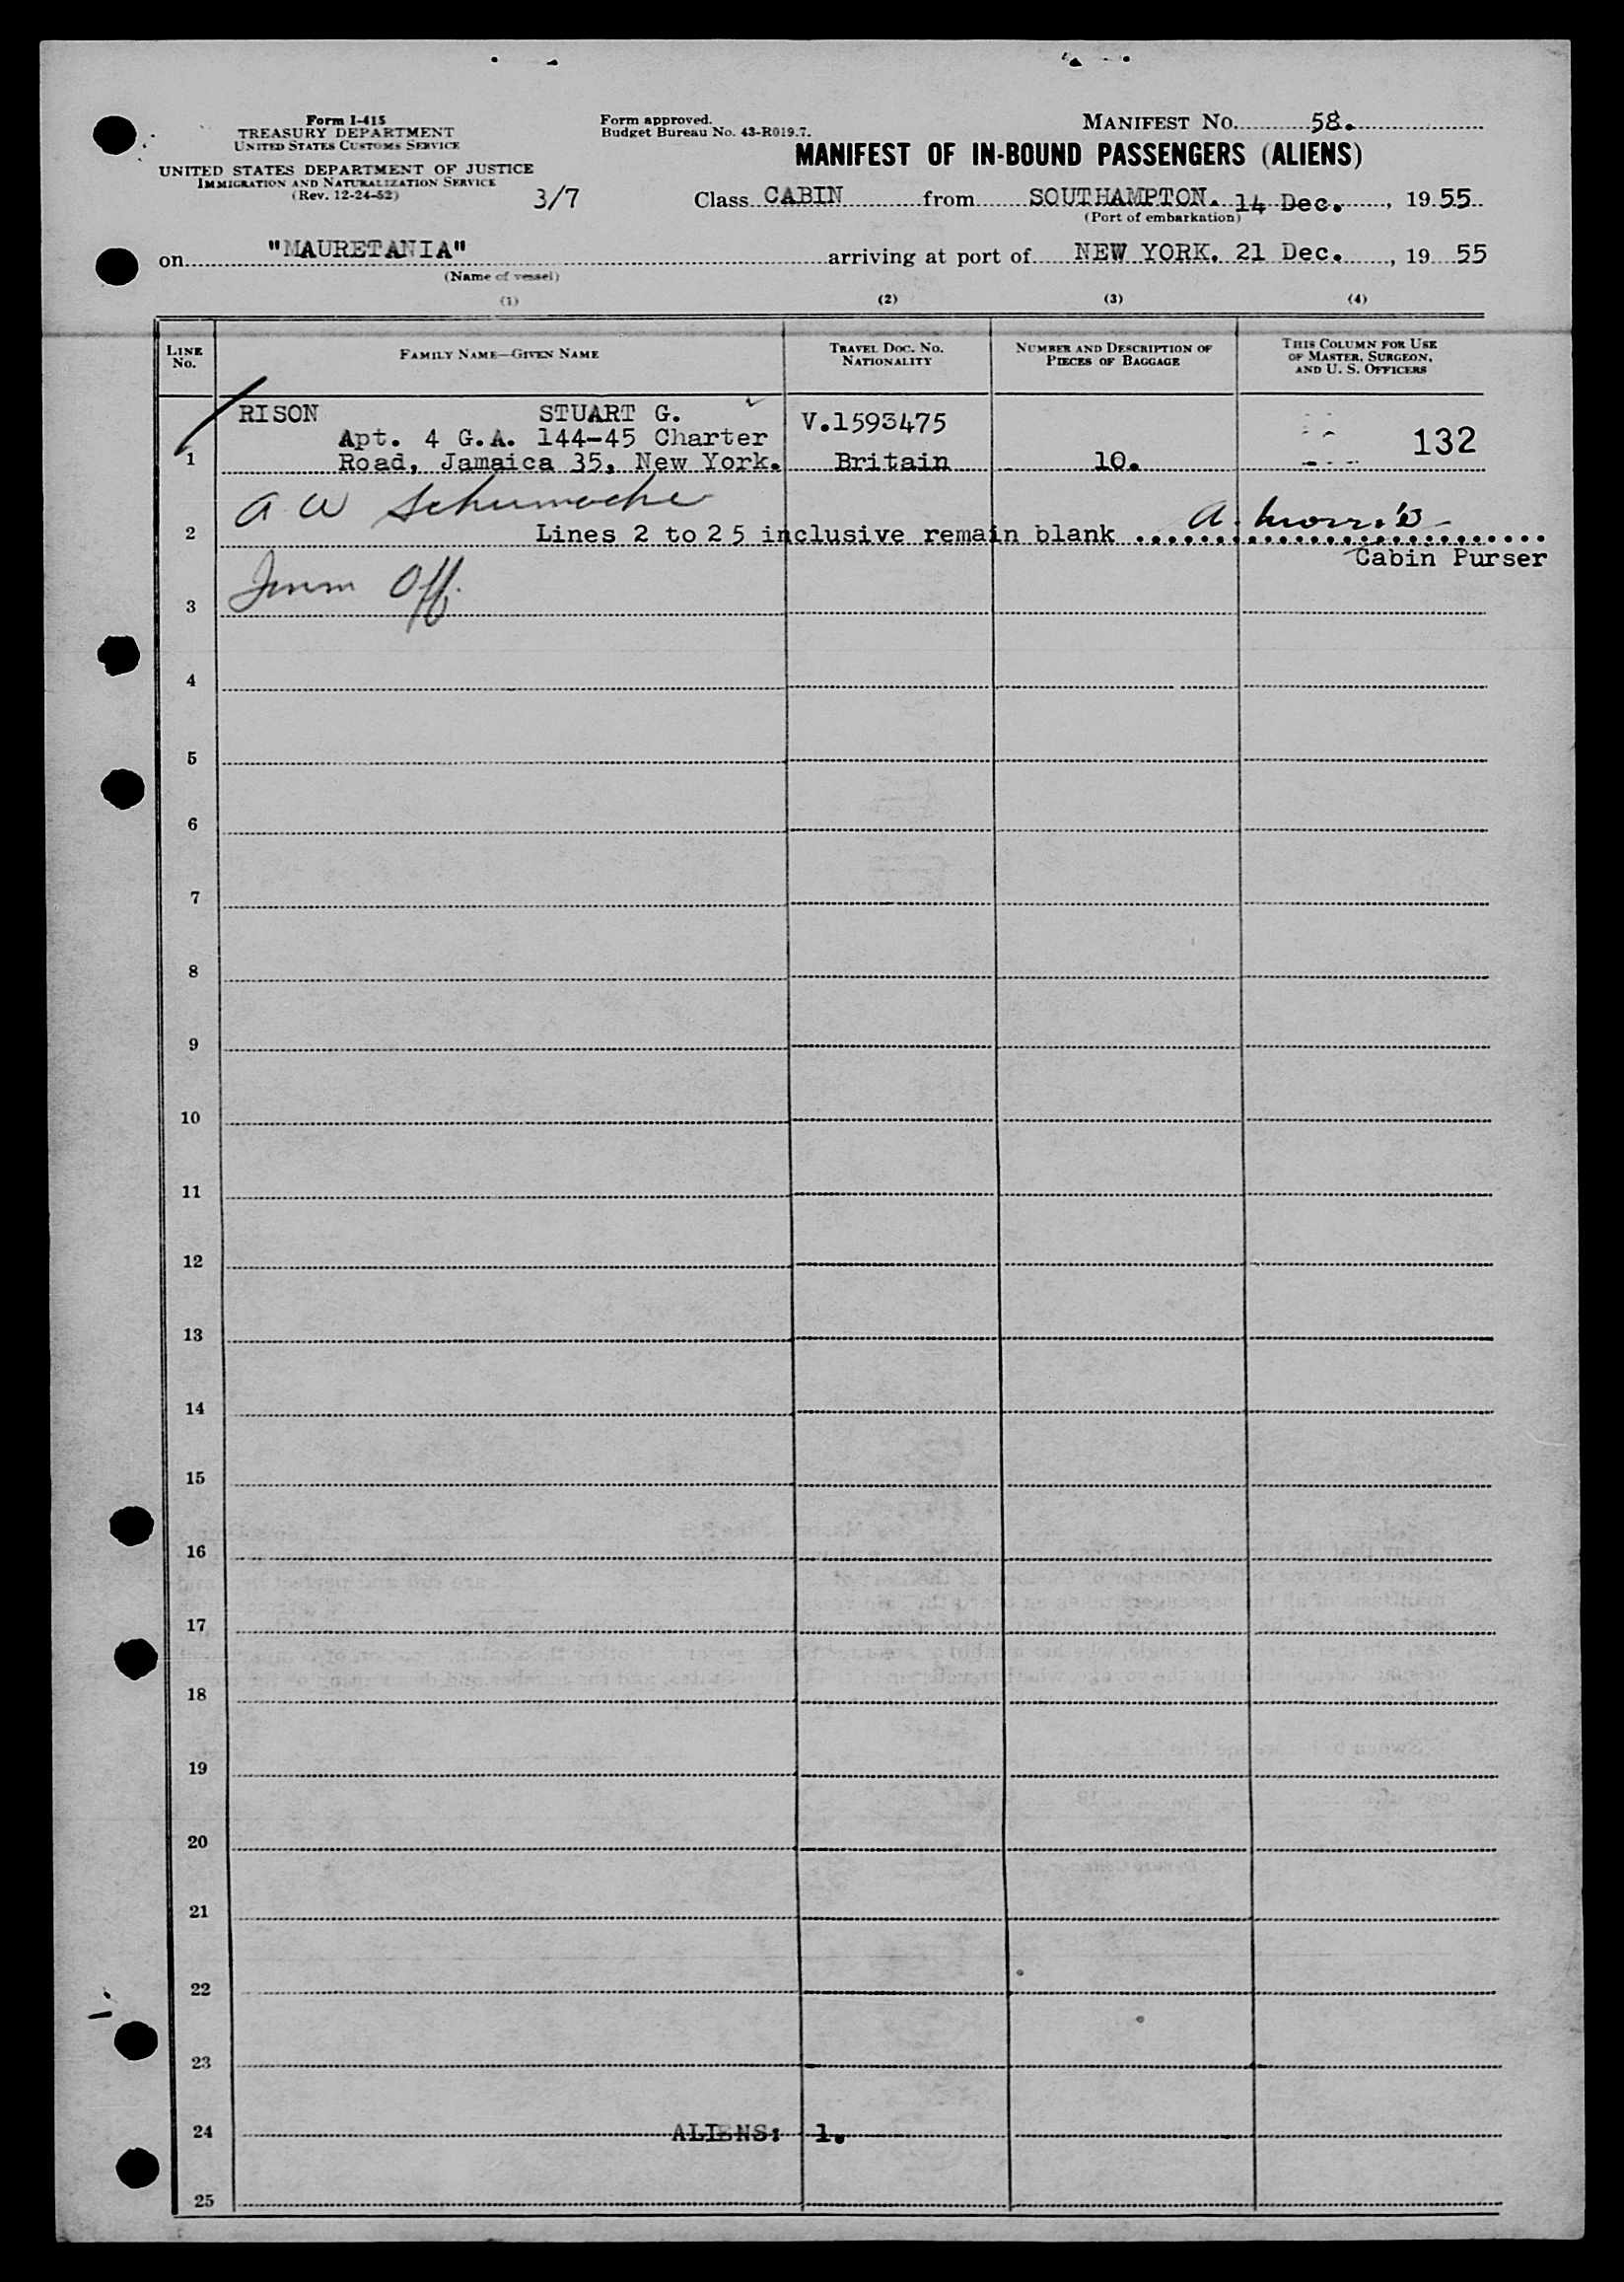 Form I-415
TREASURY DEPARTMENT
UNITED STATES CUSTOMS SERVICE
UNITED STATES DEPARTMENT OF JUSTICE
IMMIGRATION AND NATURALIZATION SERVICE
(Rev. 12-24-52)
3/7
Form approved.
Budget Bureau No. 43-R019.7.
MANIFEST NO. 58.
MANIFEST OF IN-BOUND PASSENGERS (ALIENS)
Class CABIN from SOUTHAMPTON. 14 Dec., 1955
(Port of embarkation)
on "MAURETANIA" arriving at port of NEW YORK. 21 Dec., 19 55
(Name of vessel)
(1) (2) (3) (4)
LINE No. FAMILY NAME—GIVEN NAME TRAVEL DOC. NO. NATIONALITY NUMBER AND DESCRIPTION OF PIECES OF BAGGAGE THIS COLUMN FOR USE OF MASTER, SURGEON, AND U. S. OFFICERS
RISON STUART G. V.1593475
Apt. 4 G.A. 144-45 Charter 132
1 Road, Jamaica 35, New York. Britain 10.
A W Schumache
2 Lines 2 to 25 inclusive remain blank A. Morris
Cabin Purser
3 Imm Off.
4
5
6
7
8
9
10
11
12
13
14
15
16
17
18
19
20
21
22
23
24 ALIENS: 1.
25